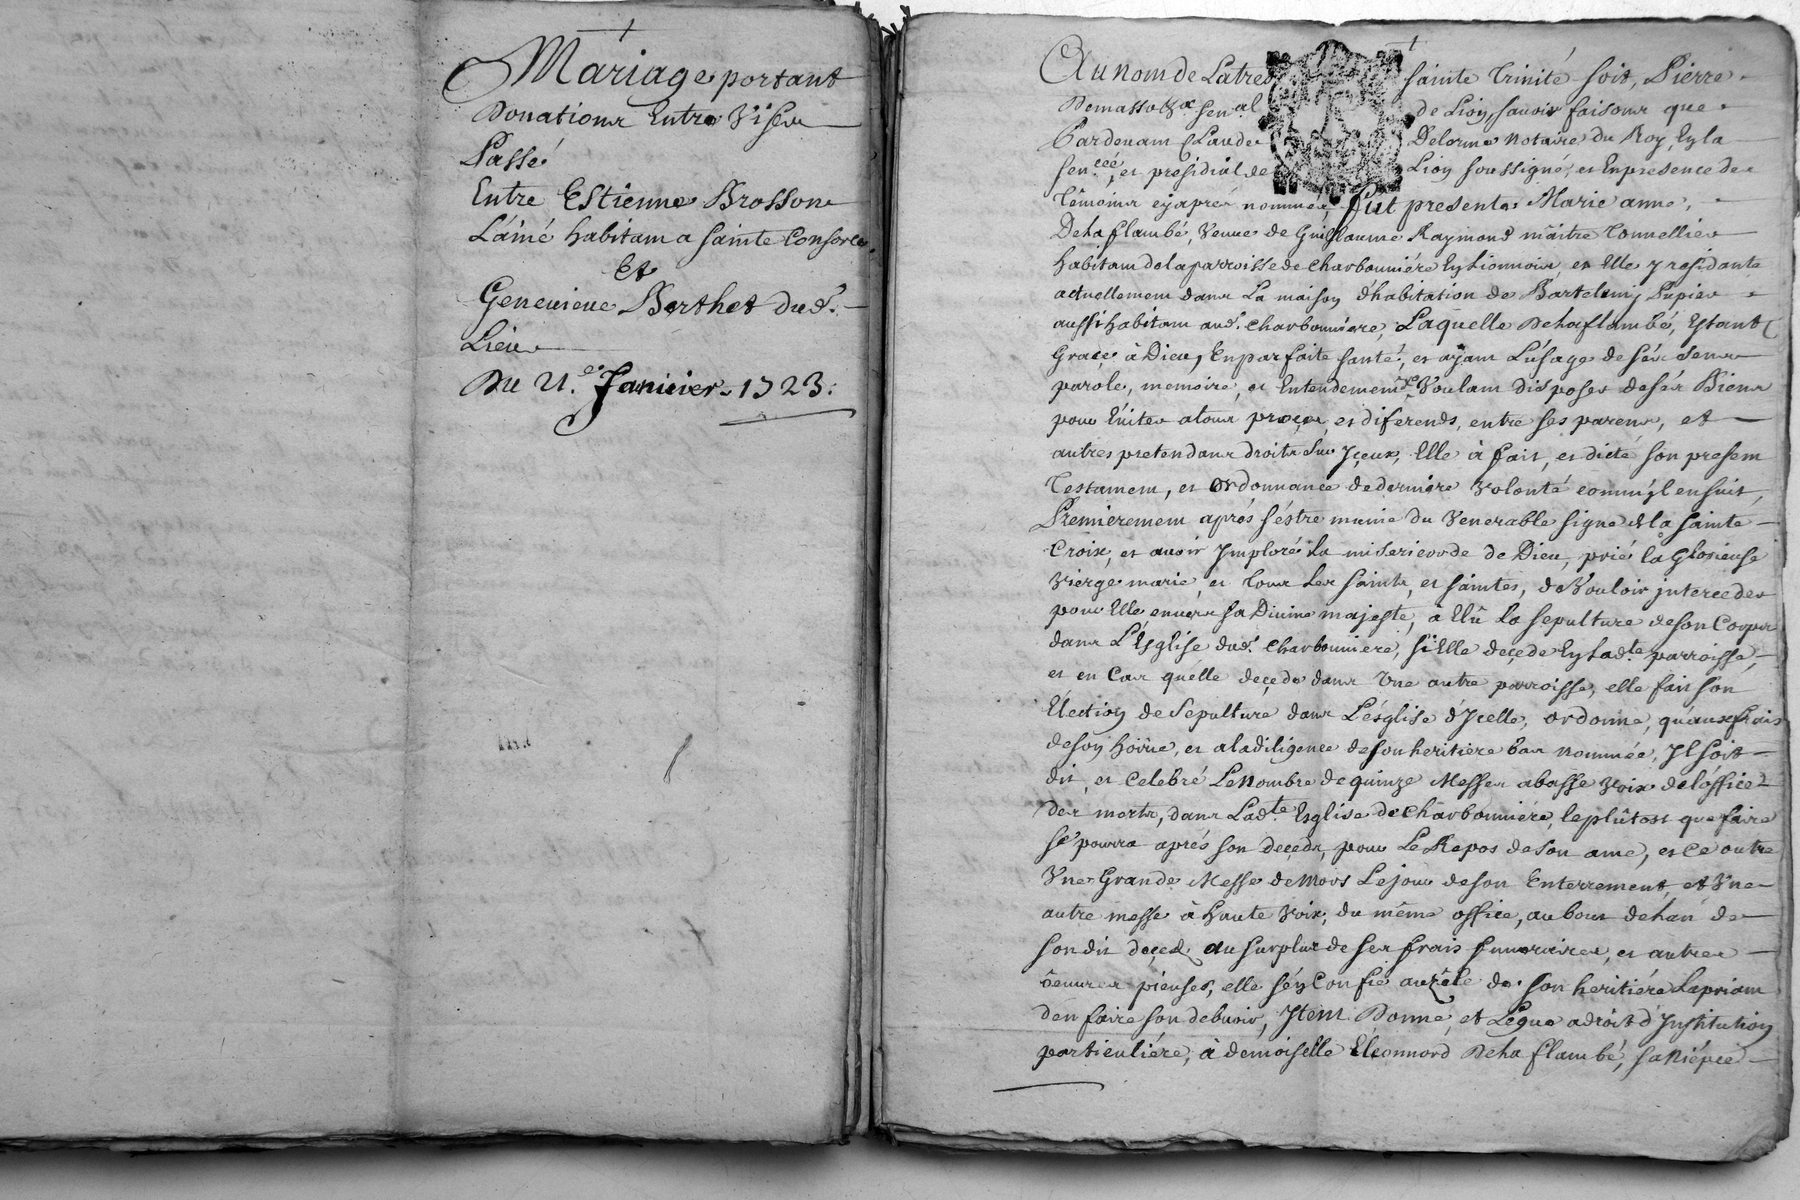 Mariage portant
Donations Entre Vifs
Passé
Entre Estienne Brosson
L'ainé habitant a sainte Consorce
Et
Genevieve Berthet dud.
Lieu
Du 21.e Janvier 1723.
Au nom de La tres sainte Trinité soit, Pierre
Demasso sen.al de Lion, savoir faisons que
Pardevant Claude Delorme Notaire du Roy, En la
sen.cée, et presidial de Lion soussigné, et En presence des
Témoins cy aprés nommés, fut presente Marie anne,
Dehaflambé, Veuve de Guillaume Raymond maitre Tonnellier
habitant de la parroisse de Charbonniére En Lionnois, et Elle y residante
actuellement dans La maison d'habitation de Bartelemy Pupier
aussi habitant aud. Charbonniere, Laquelle Dehaflambé, Estant
Grace à Dieu, En parfaite santé, et ayant L'ésage de sés sens
parole, memoire, et Entendement, Voulant disposer de sés Biens
pour Eviter a tous procés, et diferends, entre ses parens, et
autres pretendans droits sur Içeux, Elle à fait, et dicté son present
Testament, et ordonnance de derniére Volonté comm'il ensuit,
Premierement aprés s'estre munie du Venerable signe de la sainte
Croix, et avoir Imploré la misericorde de Dieu, prié la Glorieuse
Vierge marie, et Tous Les saints, et saintes, de Vouloir interceder
pour Elle envers sa Divine majeste, à Elû La sepulture de son Corps
dans L'Esglise dud. Charbonniere, si Elle deçede En lad.te parroisse,
et en Cas quélle deçede dans Une autre parroisse, elle fait son
Élection de Sepulture dans L'ésglise d'Icelle, ordonne, qu'aux frais
de son Hoirie, et a la diligence de son heritiere bas nommée, Il soit
dit, et Celebré Le Nombre de quinze Messes a basse Voix de l'office
des morts, dans Lad.te Esglise de Charbonniére, le plûtost que faire
se pourra aprés son deçeds, pour Le Repos de son ame, et Ce outre
Une Grande Messe de Mors Le jour de son Enterrement, et Une
autre messe à Haute Voix, du même office, au bout de l'an de
son dit deçeds, au surplus de ses frais funeraires, et autres
oeuvres pieuses, elle s'én Confie au zéle de son heritiére La priant
d'en faire son debvoir, Item Donne, et Legue a droit d'Institution
particuliére, à demoiselle Eléonnord Dehaflambé, sa Niépce